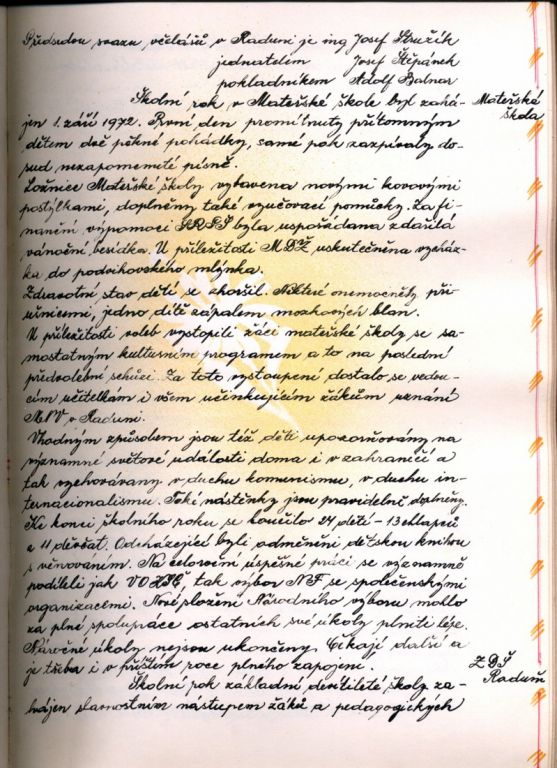 Předsedou svazu včelařů v Raduni je ing Josef Stružík
jednatelem Josef Štěpánek
pokladníkem Adolf Balnar
Školní rok v Mateřské škole byl zahá-
Mateřská
škola
jen 1. září 1972. První den promítnuty přítomným
dětem dvě pěkné pohádky, samé pak zazpívaly do-
sud nezapomenuté písně.
Ložnice Mateřské školy vybavena novými kovovými
postýlkami, doplněny také vyučovací pomůcky. Za fi-
nanční výpomoci SRPŠ byla uspořádána zdařilá
vánoční besídka. U příležitosti MDŽ uskutečněna vycház-
ka do podvihovského mlýnka.
Zdravotní stav dětí se zhoršil. Některé onemocněly pří-
ušnicemi, jedno dítě zápalem mozkových blan.
U příležitosti voleb vystopili žáci mateřské školy se sa-
mostatným kulturním programem a to na poslední
předvolební schůzi. Za toto vystoupení dostalo se vedou-
cím učitelkám i všem učinkujícím žákům uznání
MNV v Raduni.
Vhodným způsobem jsou též děti upozorňovány na
významné světové události doma i v zahraničí a
tak vychovávany v duchu komunismu, v duchu in-
ternacionalismu. Také nástěnky jsou pravidelně doplněny.
Ke konci školního roku se loučilo 24 dětí – 13 chlapců
a 11 děvčat. Odcházející byli odměněni dětskou knihou
s věnováním. Na celoroční úspěšné práci se významně
podíleli jak VO KSČ, tak výbor NF se společenskými
organizacemi. Nové složení Národního výboru mohlo
za plné spolupráce ostatních své úkoly plniti lépe.
Náročné úkoly nejsou ukončeny. Čekají další a
je třeba i v příštím roce plného zapojení.
ZDŠ
Raduň
Školní rok základní devítileté školy za-
hájen slavnostním nástupem žáků a pedagogických